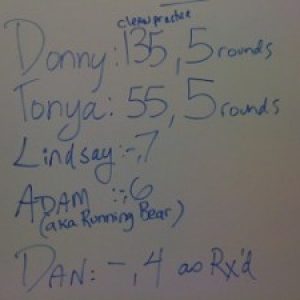 clean practice
Donny: 135, 5 rounds
Tonya: 55, 5 rounds
Lindsay: -, 7
ADAM :-, 6
(aka Running Bear)
DAN: -, 4 as Rx'd